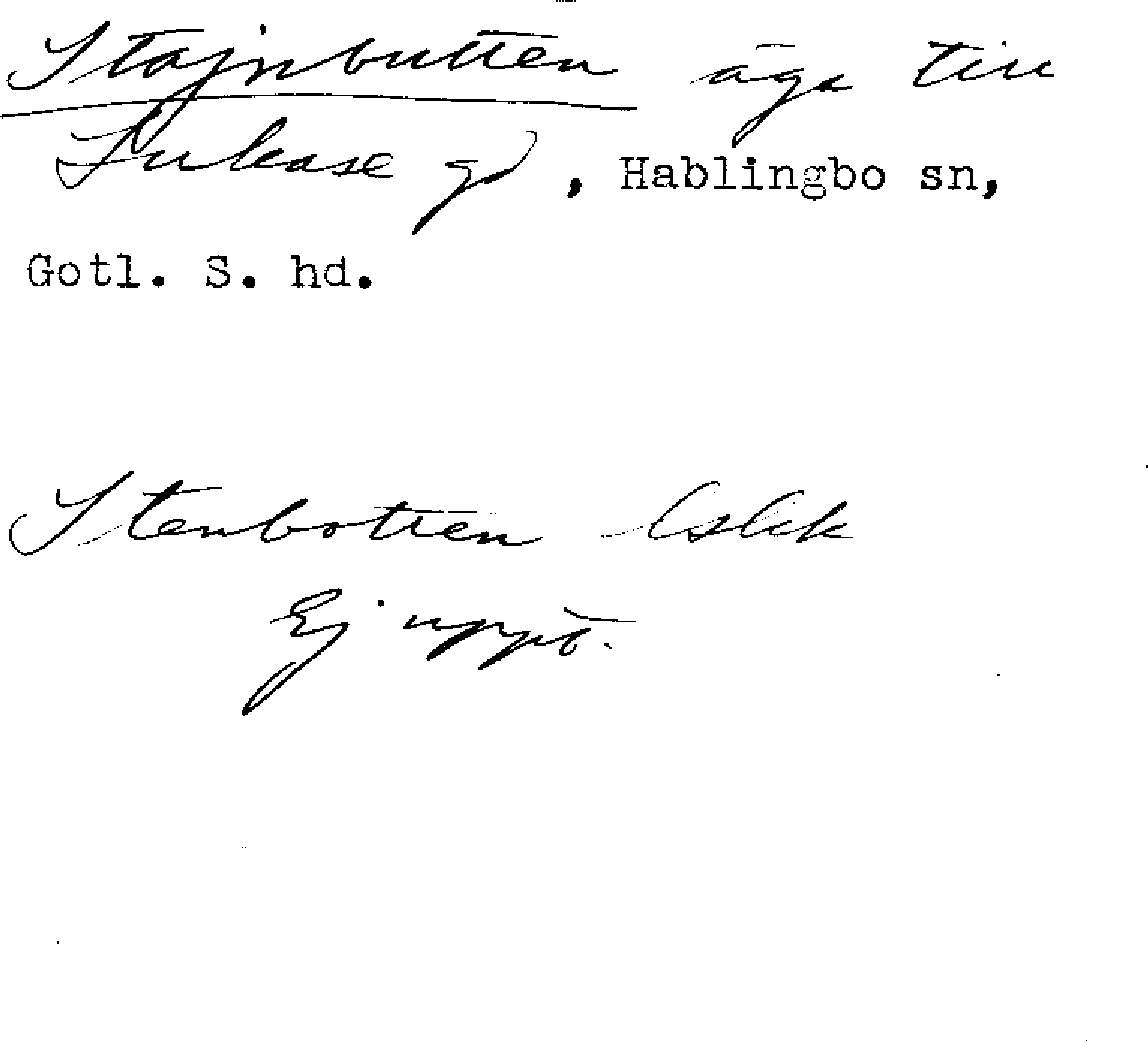 Stajnbutten äga till
Lukase gd, Hablingbo sn,
Gotl. S. hd.
Stenbotten lslkk
Ej uppt.